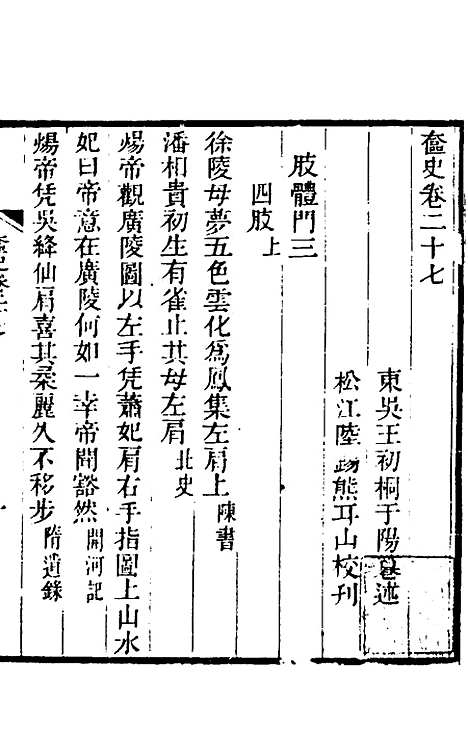 奩史卷二十七
東吳王初桐于陽纂述
松江陸錫熊耳山校刊
肢體門三
四肢上
徐陵母夢五色雲化爲鳳集左肩上陳書
潘相貴初生有雀止其母左肩北史
煬帝觀廣陵圖以左手凭蕭妃肩右手指圖上山水
妃曰帝意在廣陵何如一幸帝聞豁然開河記
煬帝凭吳絳仙肩喜其柔麗久不移步隋遺錄